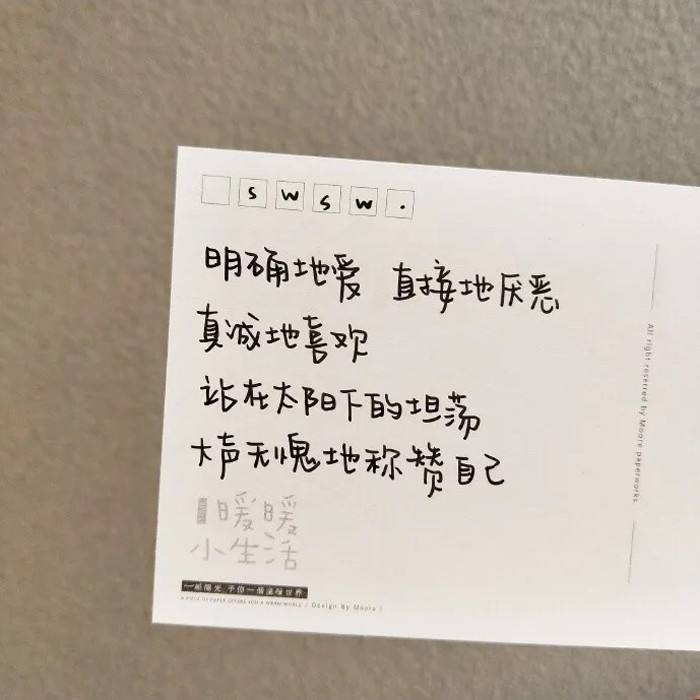 swsw.
明确地爱 直接地厌恶
真诚地喜欢
站在太阳下的坦荡
大声无愧地称赞自己
暖暖
小生活
一纸陽光 予你一個溫暖世界
A PIECE OF PAPER OFFERS YOU A WARM WORLD / Design By Moore /
All right reserred by Moore paperworks